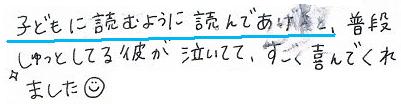 子どもに読むように読んであげると、普段
しゅっとしてる彼が泣いてて、すごく喜んでくれ
ました☺